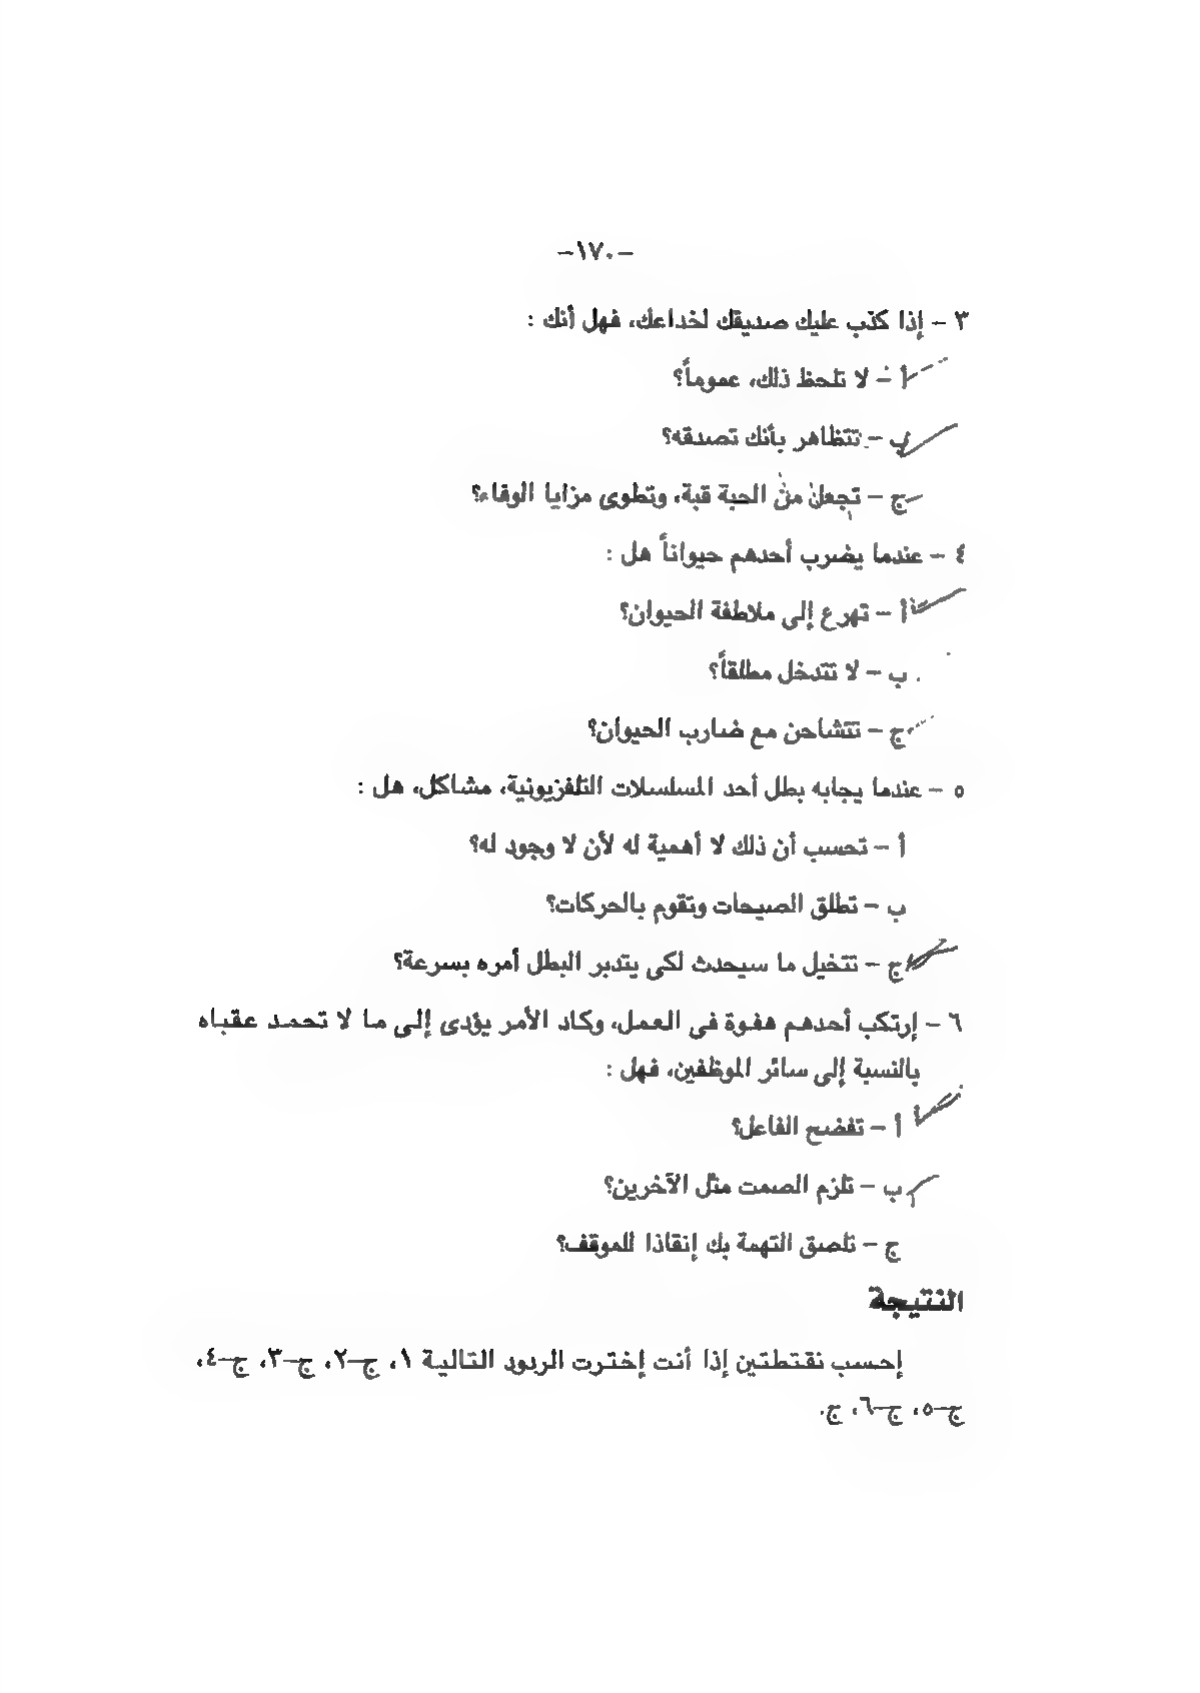 -١٧٠-
٣ - إذا كذب عليك صديقك لخداعك، فهل أنك :
أ - لا تلحظ ذلك، عموماً؟
ب - تتظاهر بأنك تصدقه؟
ج - تجعل من الحبة قبة، وتطوى مزايا الوفاء؟
٤ - عندما يضرب أحدهم حيواناً هل :
أ - تهرع إلى ملاطفة الحيوان؟
ب - لا تتدخل مطلقاً؟
ج - تتشاحن مع ضارب الحيوان؟
٥ - عندما يجابه بطل أحد المسلسلات التلفزيونية، مشاكل، هل :
أ - تحسب أن ذلك لا أهمية له لأن لا وجود له؟
ب - تطلق الصيحات وتقوم بالحركات؟
ج - تتخيل ما سيحدث لكى يتدبر البطل أمره بسرعة؟
٦ - إرتكب أحدهم هفوة فى العمل، وكاد الأمر يؤدى إلى ما لا تحمد عقباه
بالنسبة إلى سائر الموظفين، فهل :
أ - تفضح الفاعل؟
ب - تلزم الصمت مثل الآخرين؟
ج - تلصق التهمة بك إنقاذا للموقف؟
النتيجة
إحسب نقتطتين إذا أنت إخترت الردود التالية ١، ج-٢، ج-٣، ج-٤،
ج-٥، ج-٦، ج.